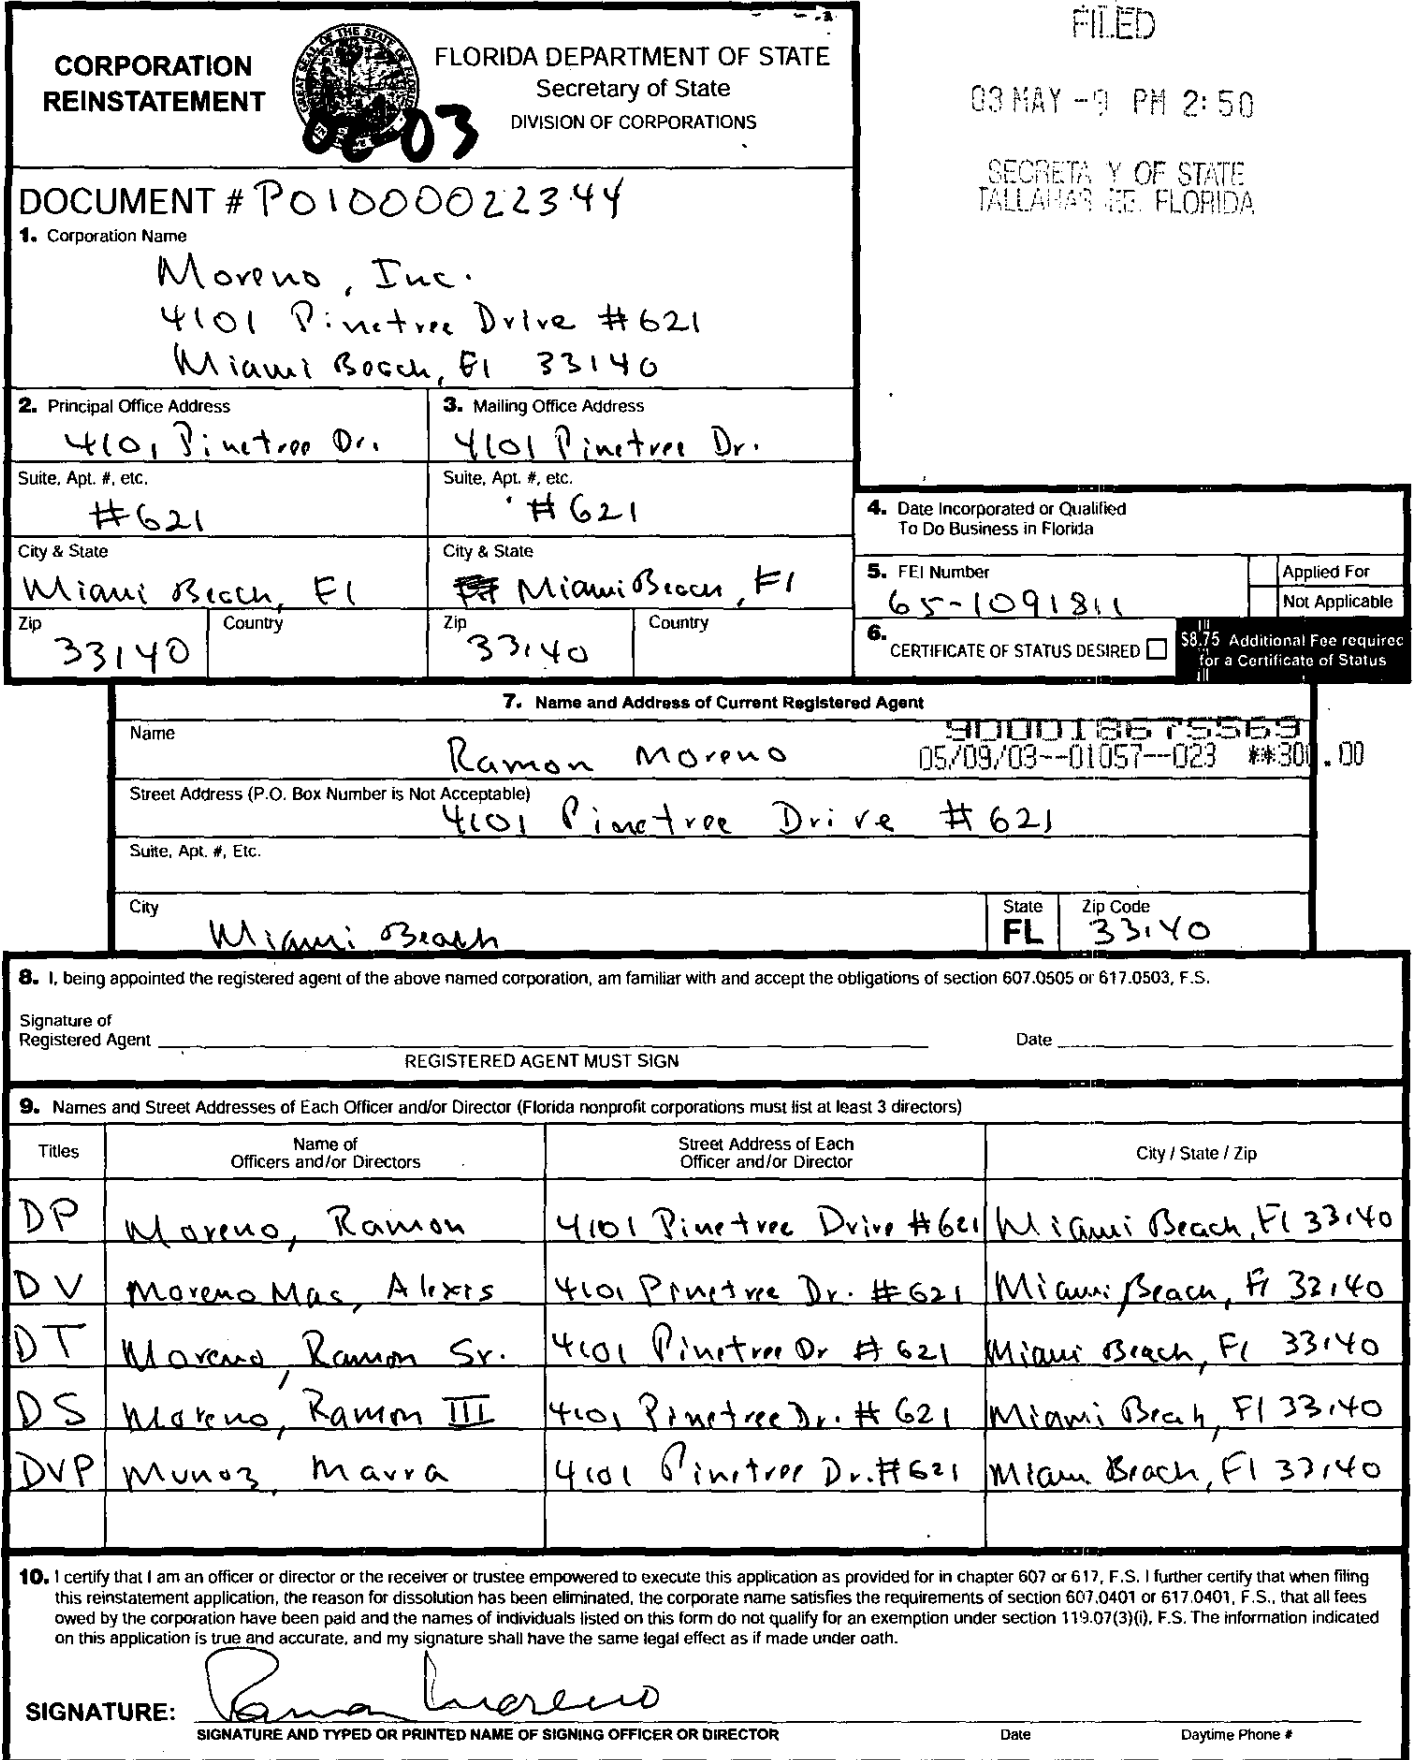 CORPORATION
REINSTATEMENT
FLORIDA DEPARTMENT OF STATE
Secretary of State
DIVISION OF CORPORATIONS
02-03
FILED
03 MAY -9 PM 2:50
SECRETA Y OF STATE
TALLAHAS EE. FLORIDA
DOCUMENT # P01000022344
1. Corporation Name
Moreno, Inc.
4101 Pinetree Drive #621
Miami Beach, Fl 33140
2. Principal Office Address
4101 Pinetree Dr.
3. Mailing Office Address
4101 Pinetree Dr.
Suite, Apt. #, etc.
#621
Suite, Apt. #, etc.
#621
City & State
Miami Beach, Fl
City & State
Miami Beach, Fl
Zip
33140
Country
Zip
33140
Country
4. Date Incorporated or Qualified
To Do Business in Florida
5. FEI Number
65-1091811
Applied For
Not Applicable
6. CERTIFICATE OF STATUS DESIRED
$8.75 Additional Fee required
for a Certificate of Status
7. Name and Address of Current Registered Agent
Name
Ramon Moreno
900018675569
05/09/03--01057--023 **300.00
Street Address (P.O. Box Number is Not Acceptable)
4101 Pinetree Drive #621
Suite, Apt. #, Etc.
City
Miami Beach
State
FL
Zip Code
33140
8. I, being appointed the registered agent of the above named corporation, am familiar with and accept the obligations of section 607.0505 or 617.0503, F.S.
Signature of
Registered Agent
Date
REGISTERED AGENT MUST SIGN
9. Names and Street Addresses of Each Officer and/or Director (Florida nonprofit corporations must list at least 3 directors)
Titles
Name of
Officers and/or Directors
Street Address of Each
Officer and/or Director
City / State / Zip
DP Moreno, Ramon 4101 Pinetree Drive #621 Miami Beach, Fl 33140
DV Moreno Mas, Alexis 4101 Pinetree Dr. #621 Miami Beach, Fl 33140
DT Moreno, Ramon Sr. 4101 Pinetree Dr #621 Miami Beach, Fl 33140
DS Moreno, Ramon III 4101 Pinetree Dr. #621 Miami Beah, Fl 33140
DVP Munoz, Mayra 4101 Pinetree Dr. #621 Miami Beach, Fl 33140
10. I certify that I am an officer or director or the receiver or trustee empowered to execute this application as provided for in chapter 607 or 617, F.S. I further certify that when filing
this reinstatement application, the reason for dissolution has been eliminated, the corporate name satisfies the requirements of section 607.0401 or 617.0401, F.S., that all fees
owed by the corporation have been paid and the names of individuals listed on this form do not qualify for an exemption under section 119.07(3)(i), F.S. The information indicated
on this application is true and accurate, and my signature shall have the same legal effect as if made under oath.
SIGNATURE: Ramon Moreno
SIGNATURE AND TYPED OR PRINTED NAME OF SIGNING OFFICER OR DIRECTOR
Date
Daytime Phone #